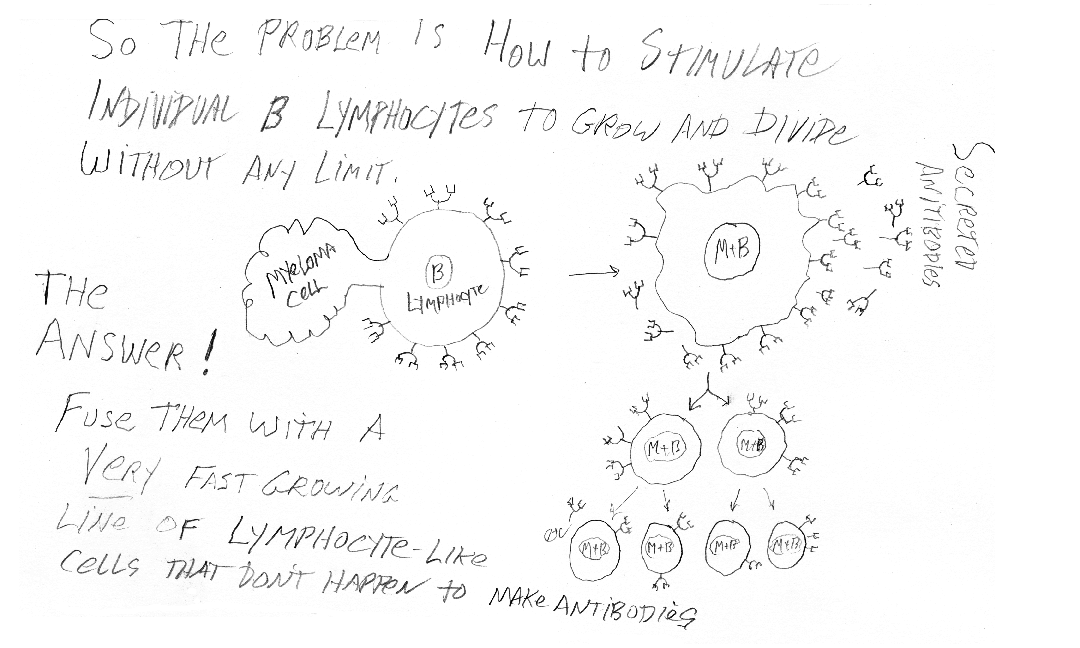 So THE PROBLEM IS HOW to STIMULATE
INDIVIDUAL B LYMPHOCYTES TO GROW AND DIVIDE
WITHOUT ANY LIMIT.
SECRETED
ANTIBODIES
MYELOMA
CELL
B
LYMPHOCYTE
M+B
THE
ANSWER!
FUSE THEM WITH A
VERY FAST GROWING
LINE OF LYMPHOCYTE-LIKE
CELLS THAT DON'T HAPPEN to MAKE ANTIBODIES
M+B
M+B
M+B
M+B
M+B
M+B